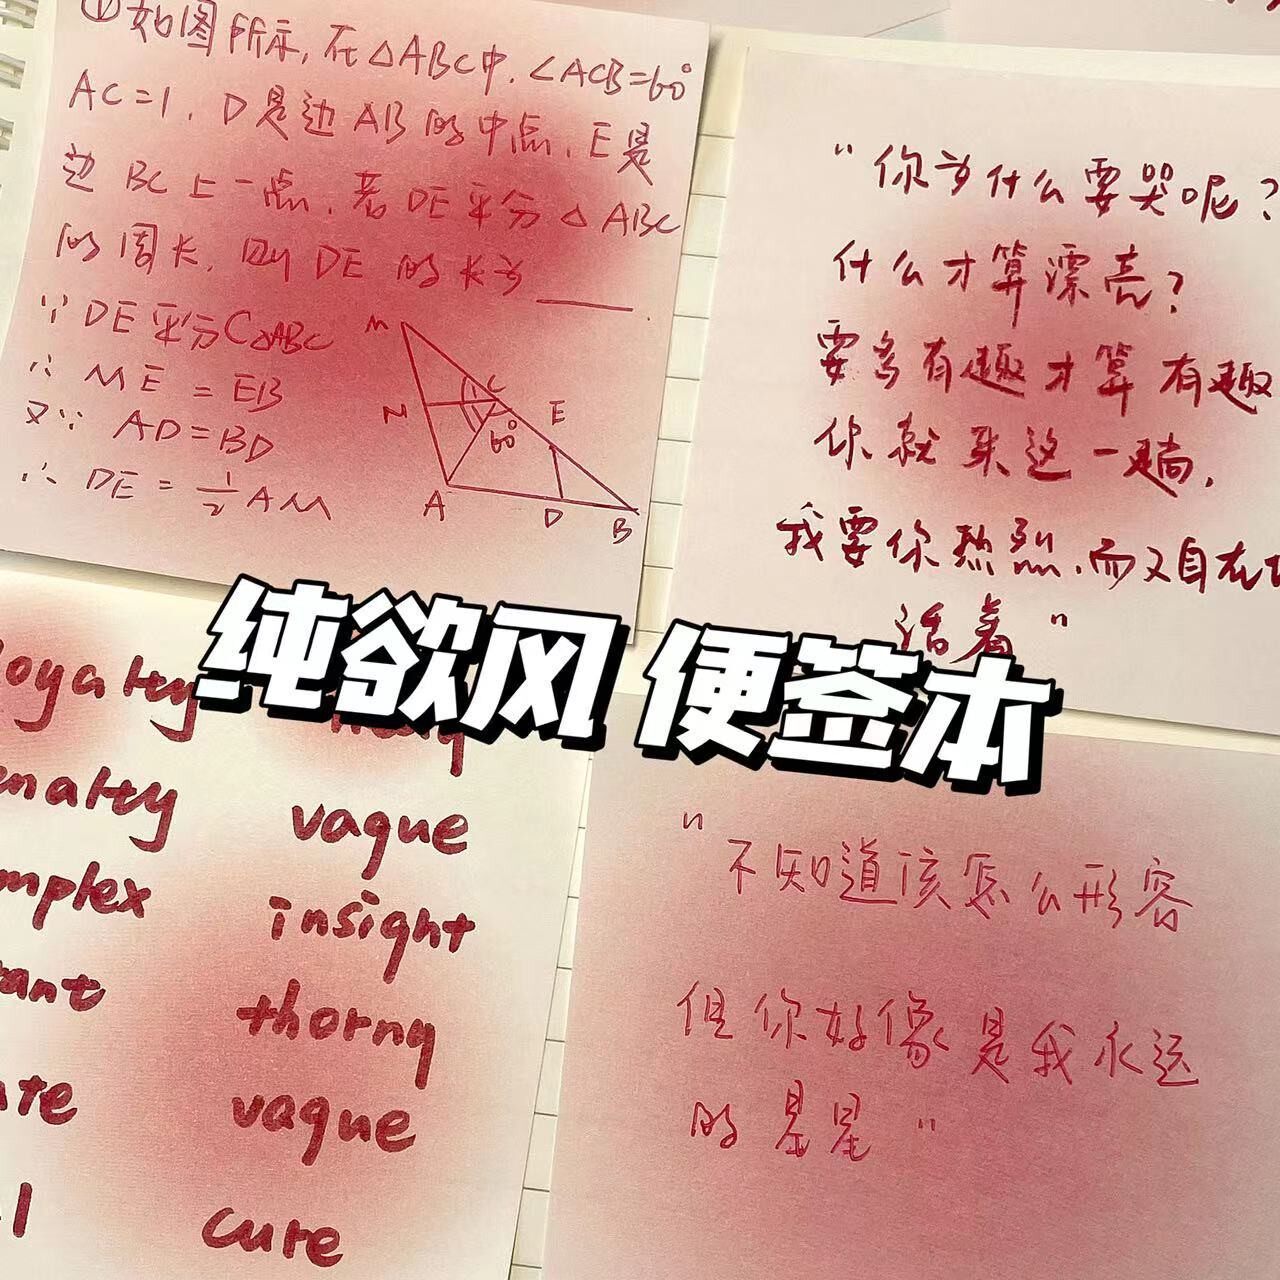 ①如图所示,在△ABC中,∠ACB=60°
AC=1,D是边AB的中点,E是
边BC上一点,若DE平分△ABC
的周长,则DE的长为____.
∵DE平分C△ABC
∴ME=EB
又∵AD=BD
∴DE=½AM
M
N
C
60°
E
A
D
B
"你为什么要哭呢?
什么才算漂亮?
要多有趣才算有趣
你就来这一趟,
我要你热烈,而又自在地
活着"
纯欲风 便签本
vague
insight
thorny
vague
cute
"不知道该怎么形容
但你好像是我永远
的星星"